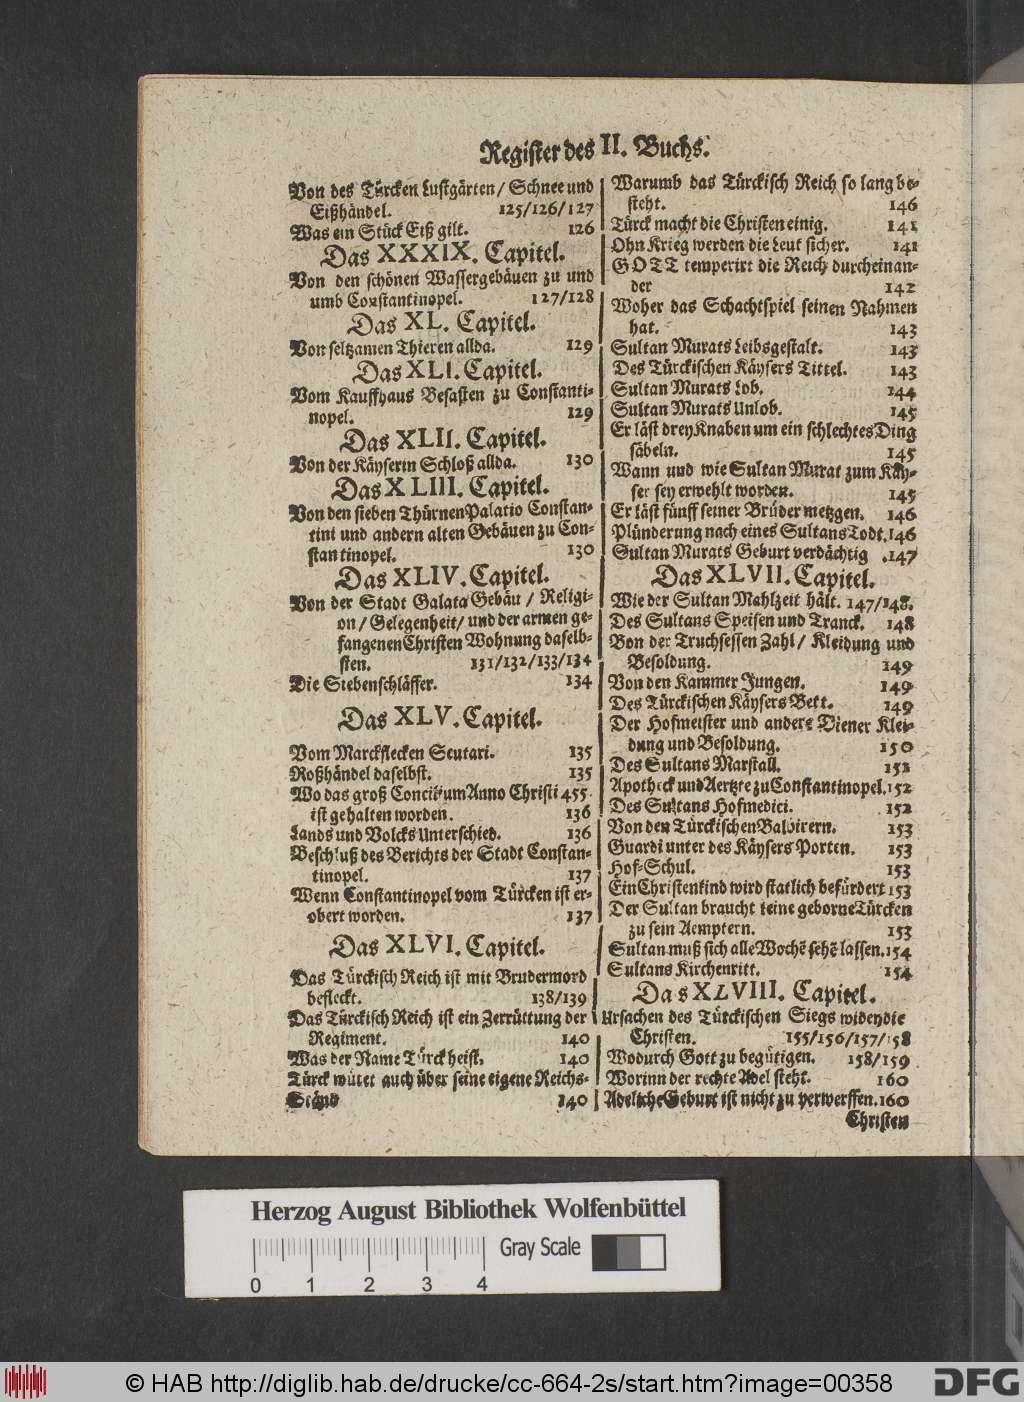 Register des II. Buchs.
Von des Türcken Lustgärten / Schnee und
Eißhändel. 125/126/127
Was ein Stück Eiß gilt. 126
Das XXXIX. Capitel.
Von den schönen Wassergebäuen zu und
umb Constantinopel. 127/128
Das XL. Capitel.
Von seltzamen Thieren allda. 129
Das XLI. Capitel.
Vom Kauffhaus Besasten zu Constanti-
nopel. 129
Das XLII. Capitel.
Von der Käyserin Schloß allda. 130
Das XLIII. Capitel.
Von den sieben Thürnen Palatio Constan-
tini und andern alten Gebäuen zu Con-
stantinopel. 130
Das XLIV. Capitel.
Von der Stadt Galata Gebäu / Religi-
on / Gelegenheit / und der armen ge-
fangenen Christen Wohnung daselb-
sten. 131/132/133/134
Die Siebenschläffer. 134
Das XLV. Capitel.
Vom Marckflecken Scutari. 135
Roßhändel daselbst. 135
Wo das groß Concilium Anno Christi 455.
ist gehalten worden. 136
Lands und Volcks Unterschied. 136
Beschluß des Berichts der Stadt Constan-
tinopel. 137
Wenn Constantinopel vom Türcken ist er-
obert worden. 137
Das XLVI. Capitel.
Das Türckisch Reich ist mit Brudermord
befleckt. 138/139
Das Türckisch Reich ist ein Zerrüttung der
Regiment. 140
Was der Name Türck heist. 140
Türck wütet auch über seine eigene Reichs-
Ständ 140
Warumb das Türckisch Reich so lang be-
steht. 146
Türck macht die Christen einig. 141
Ohn Krieg werden die Leut sicher. 141
GOTT temperirt die Reich durcheinan-
der 142
Woher das Schachtspiel seinen Nahmen
hat. 143
Sultan Murats Leibsgestalt. 143
Des Türckischen Käysers Tittel. 143
Sultan Murats Lob. 144
Sultan Murats Unlob. 145
Er läst drey Knaben um ein schlechtes Ding
säbeln. 145
Wann und wie Sultan Murat zum Käy-
ser sey erwehlt worden. 145
Er läst fünff seiner Brüder metzgen. 146
Plünderung nach eines Sultans Todt. 146
Sultan Murats Geburt verdächtig . 147
Das XLVII. Capitel.
Wie der Sultan Mahlzeit hält. 147/148.
Des Sultans Speisen und Tranck. 148
Von der Truchsessen Zahl / Kleidung und
Besoldung. 149
Von den Kammer Jungen. 149
Des Türckischen Käysers Bett. 149
Der Hofmeister und andere Diener Klei-
dung und Besoldung. 150
Des Sultans Marstall. 151
Apotheck und Aertzte zu Constantinopel. 152
Des Sultans Hofmedici. 152
Von den Türckischen Balbirern. 153
Guardi unter des Käysers Porten. 153
Hof-Schul. 153
Ein Christenkind wird statlich befürdert 153
Der Sultan braucht keine geborne Türcken
zu sein Aemptern. 153
Sultan muß sich alle Wochẽ sehẽ lassen. 154
Sultans Kirchenritt. 154
Das XLVIII. Capitel.
Ursachen des Türckischen Siegs wider die
Christen. 155/156/157/158
Wodurch Gott zu begütigen. 158/159
Worinn der rechte Adel steht. 160
Adeliche Geburt ist nicht zu verwerffen. 160
Christen
Herzog August Bibliothek Wolfenbüttel
Gray Scale
0 1 2 3 4
© HAB http://diglib.hab.de/drucke/cc-664-2s/start.htm?image=00358
DFG